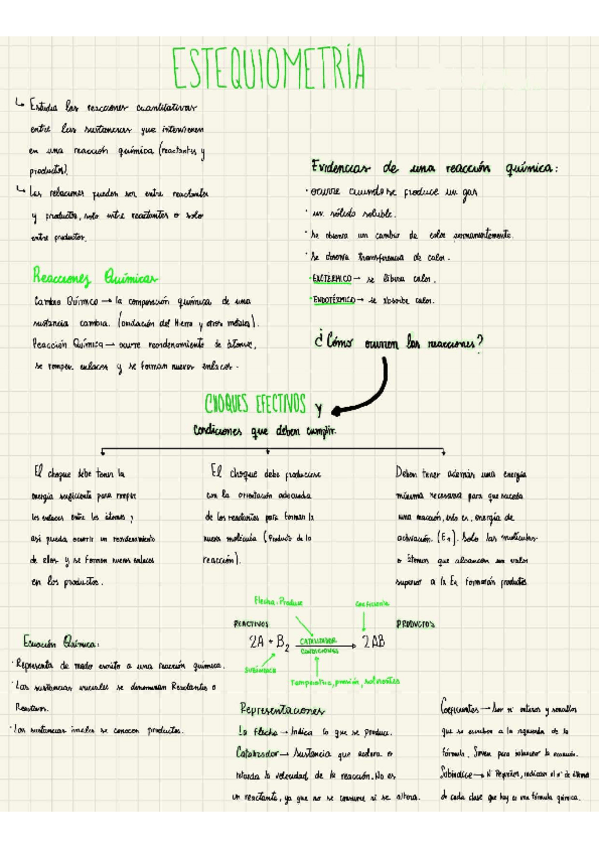 ESTEQUIOMETRÍA
↳ Estudia las reacciones cuantitativas
entre las sustancias que intervienen
en una reacción química (reactantes y
productos).
↳ Las relaciones pueden ser entre reactantes
y productos, solo entre reactantes o solo
entre productos.
Reacciones Químicas
Cambio Químico → la composición química de una
sustancia cambia. (oxidación del Hierro y otros metales).
Reacción Química → ocurre reordenamiento de átomos,
se rompen enlaces y se forman nuevos enlaces.
Evidencias de una reacción química:
· ocurre cuando se produce un gas
· un sólido soluble.
· Se observa un cambio de color permanentemente.
· Se observa transferencia de calor.
· EXOTÉRMICO → se libera calor.
· ENDOTÉRMICO → se absorbe calor.
¿Cómo ocurren las reacciones?
CHOQUES EFECTIVOS y
Condiciones que deben cumplir.
El choque debe tener la
energía suficiente para romper
los enlaces entre los átomos y
así pueda ocurrir un reordenamiento
de ellos y se formen nuevos enlaces
en los productos.
El choque debe producirse
con la orientación adecuada
de los reactantes para formar la
nueva molécula (Producto de la
reacción).
Deben tener además una energía
mínima necesaria para que suceda
una reacción, esto es, energía de
activación. (Ea). Solo las moléculas
o átomos que alcanzan un valor
superior a la Ea formarán productos
Flecha - Produce
Coeficiente
REACTIVOS
PRODUCTOS
2A + B₂ CATALIZADOR 2AB
CONDICIONES
SUBÍNDICE
Temperatura, presión, solventes
Ecuación Química:
· Representa de modo escrito a una reacción química.
· Las sustancias iniciales se denominan Reactantes o
Reactivos.
· Las sustancias finales se conocen productos.
Representaciones
La Flecha → Indica lo que se produce.
Catalizador → Sustancia que acelera o
retarda la velocidad de la reacción. No es
un reactante, ya que no se consume ni se altera.
Coeficientes → Son n° enteros y sencillos
que se escriben a la izquierda de la
fórmula. Sirven para balancear la ecuación.
Subíndice → N° Pequeños, indican el n° de átomos
de cada clase que hay en una fórmula química.